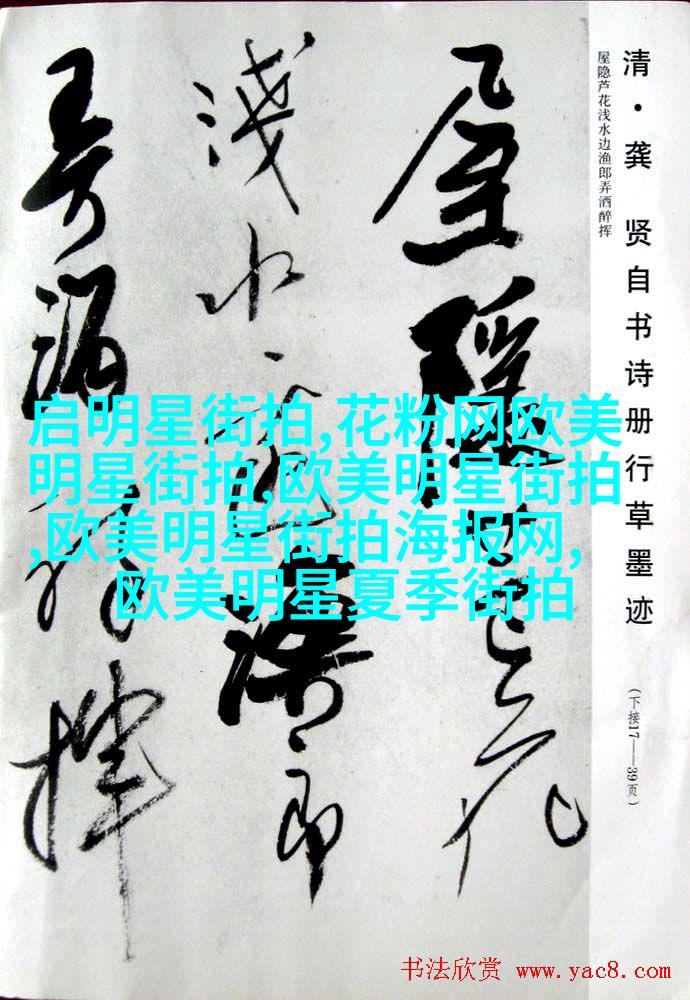 清·龚 贤自书诗册行草墨迹
(下接17——39页)
屋隐芦花浅水边渔郎弄洒醉挥
屋隱芦花
淺水边漁郎
弄酒醉揮
启明星街拍,花粉网欧美
明星街拍,欧美明星街拍
,欧美明星街拍海报网,
欧美明星夏季街拍
书法欣赏 www.yac8.com